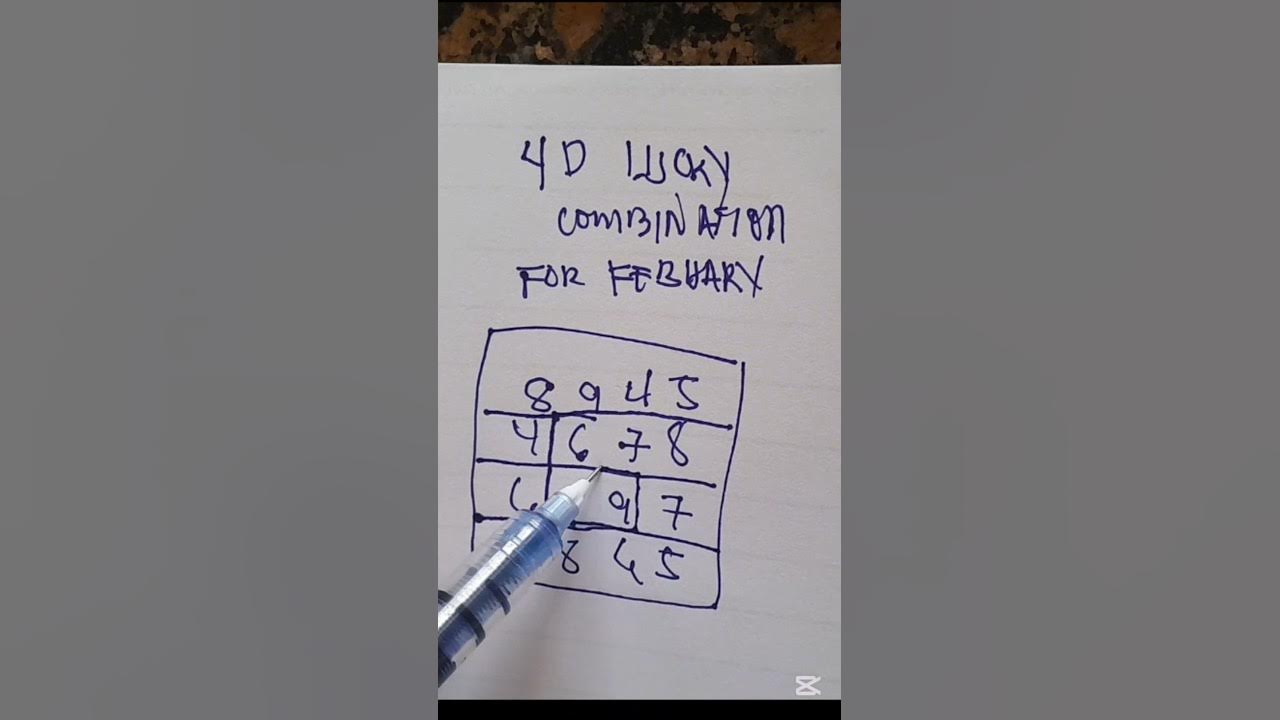 4D LUCKY
COMBINATION
FOR FEBUARY
8 9 4 5
4 6 7 8
6 9 7
8 6 5